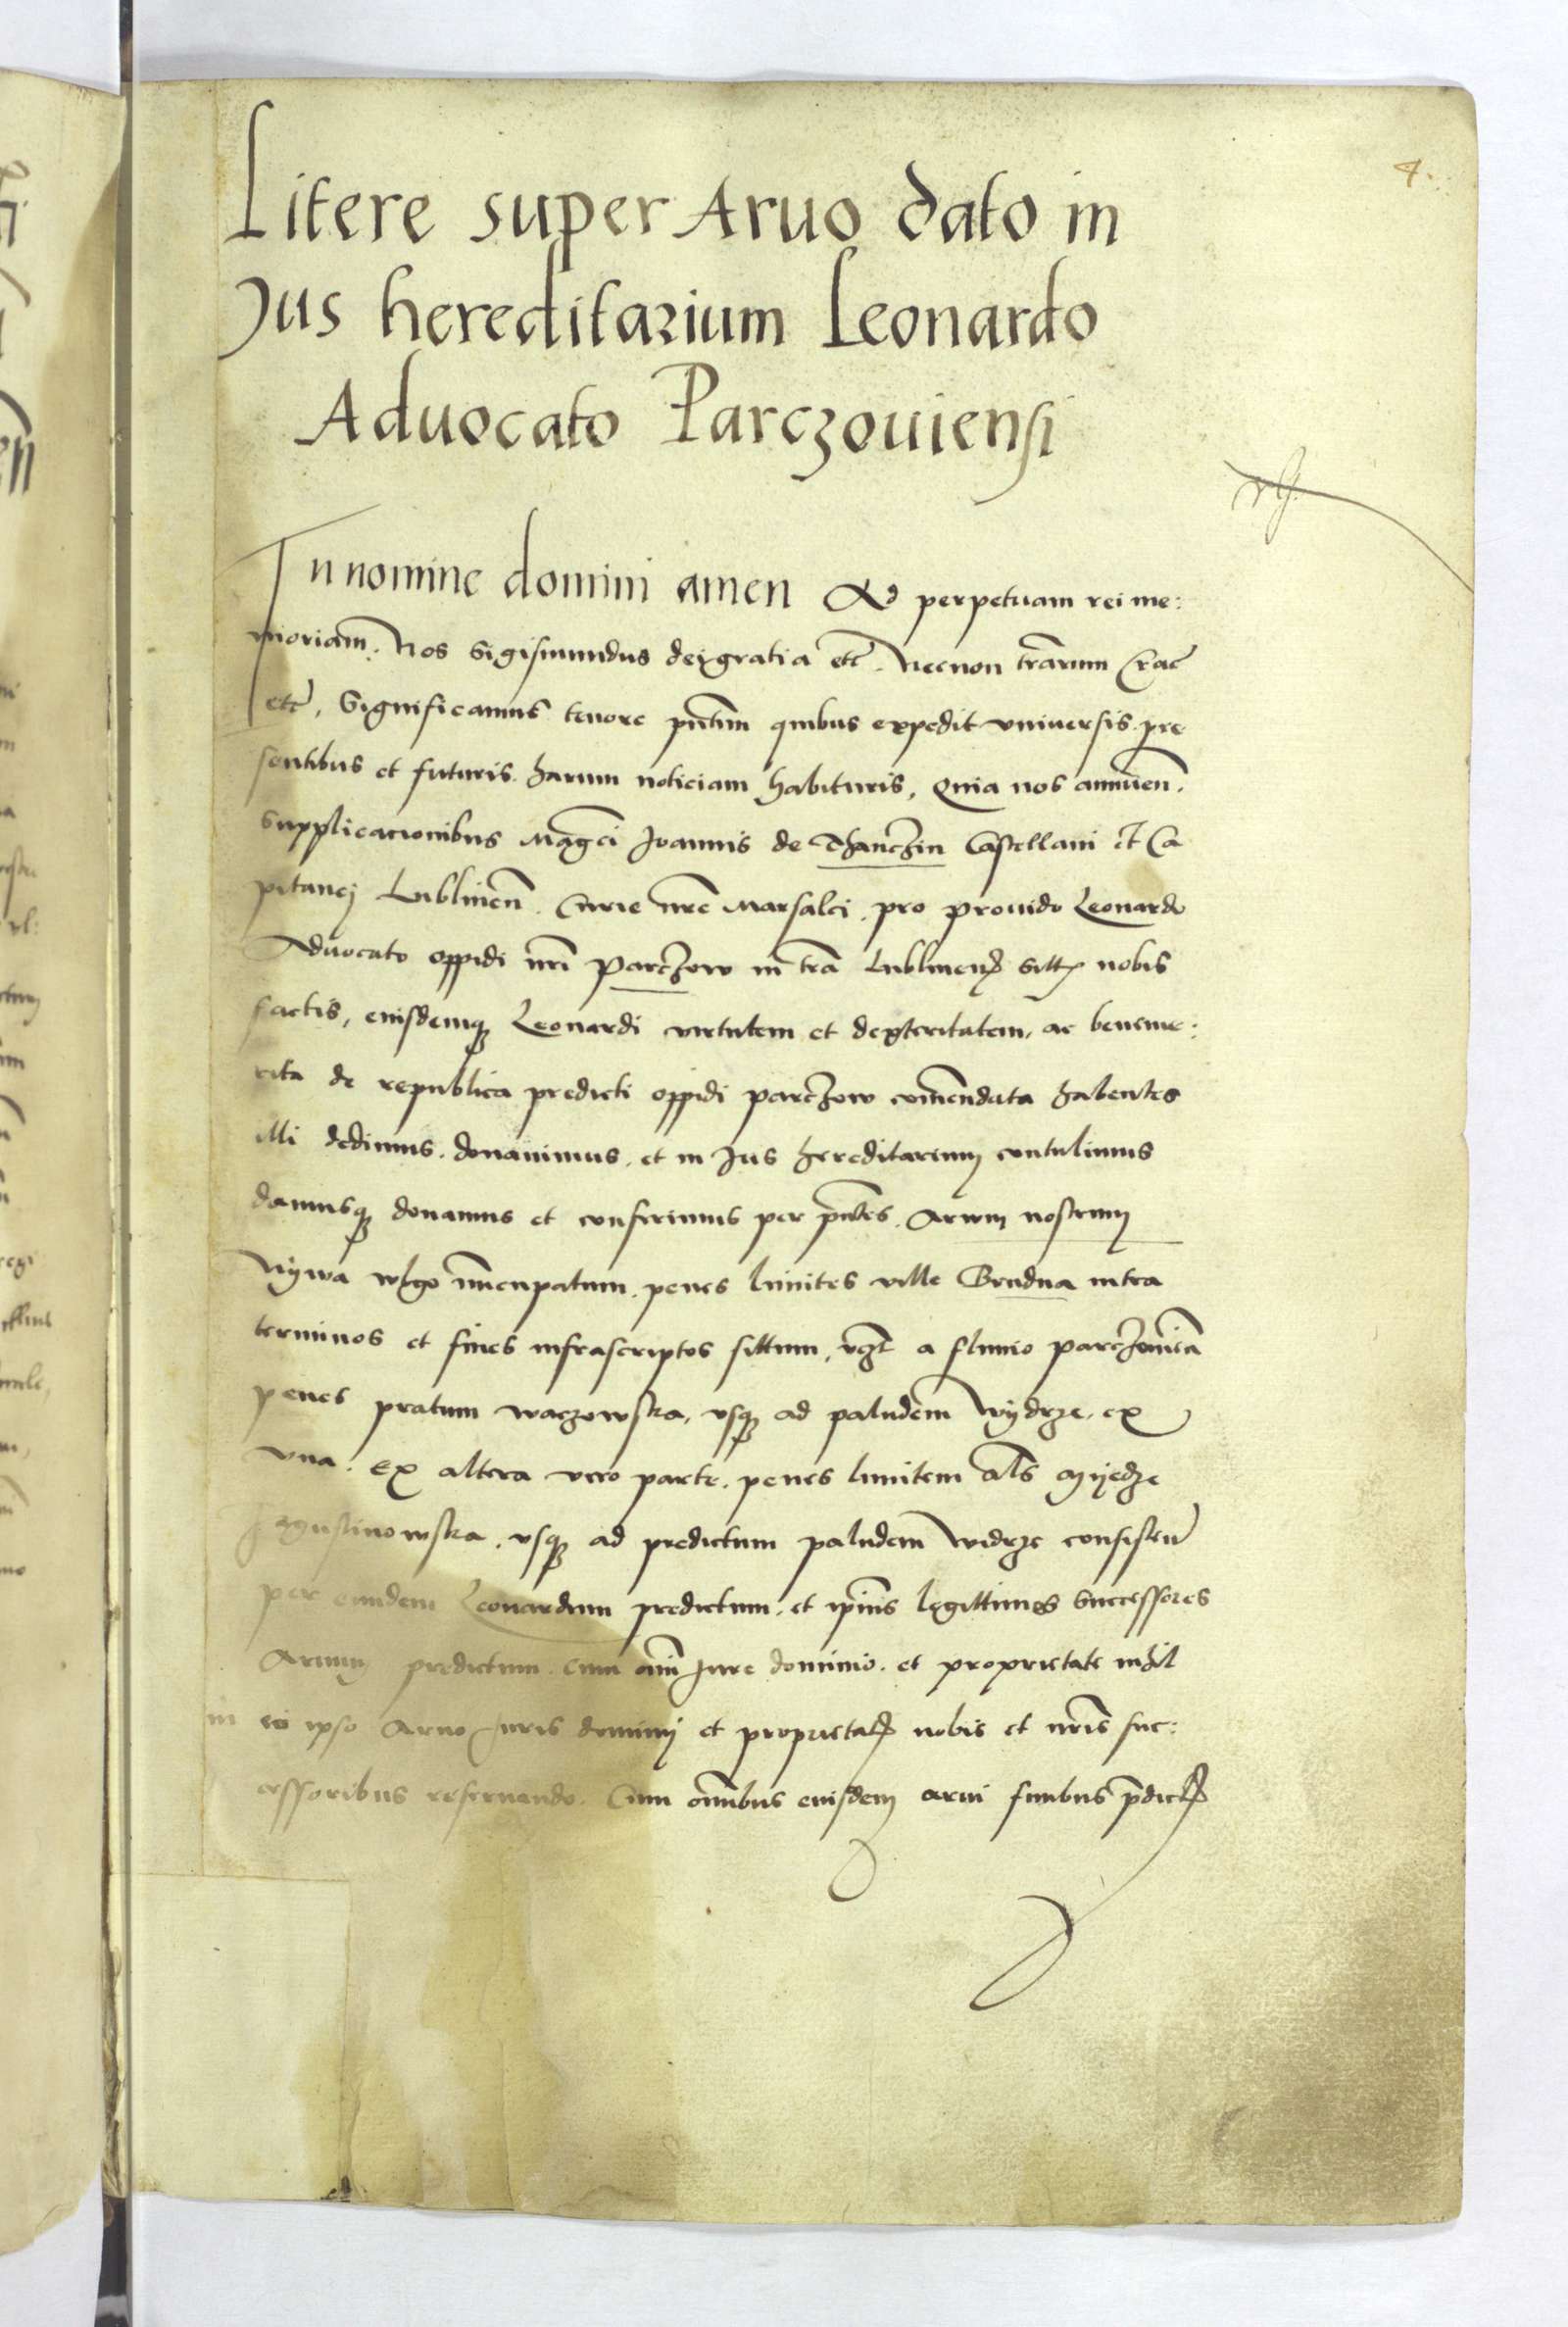 4.
Litere super Aruo dato in
Jus hereditarium Leonardo
Aduocato Parczouiensi
In nomine domini amen Ad perpetuam rei me:
moriam. Nos Sigismundus dei gratia etc̄. necnon tr̄arum Crac̄
etc̄, Significamus tenore pn̄tium quibus expedit vniuersis pre
sentibus et futuris. harum noticiam habituris, Quia nos annuen̄.
Supplicacionibus Maḡci Joannis de Thanczin Castellani et Ca
pitanej Lublinen̄. Curie nr̄e Marsalci. pro prouido Leonardo
Aduocato oppidi nr̄i Parczow in tr̄a Lublinen̄ nobis
factis, eiusdemq Leonardi virtutem et dexteritatem, ac beneme:
rita de republica predicti oppidi parczow com̄endata habentes
illi dedimus. donauimus. et in Jus hereditarium contulimus
damusq donamus et conferimus per pn̄tes. Aruum nostrum
Nywa wlgo nuncupatum. penes limites ville Brudna intra
terminos et fines infrascriptos sittum, vz̄ a fluuio parczowica
penes pratum waczowska, vsq ad paludem Wydrze, ex
vna. Ex altera vero parte. penes limitem al̄s myedze
vsq ad predictum paludem widrze consisten̄
per eundem Leonardum predictum. et ip̄ius legittimos Successores
Aruum predictum. cum om̄i Jure dominio. et proprietate nihil
in eo ipso Aruo Juris dominij et proprietatis nobis et nr̄is suc:
cessoribus reseruando. Cum om̄ibus eiusdem arui finibus p̄dictis